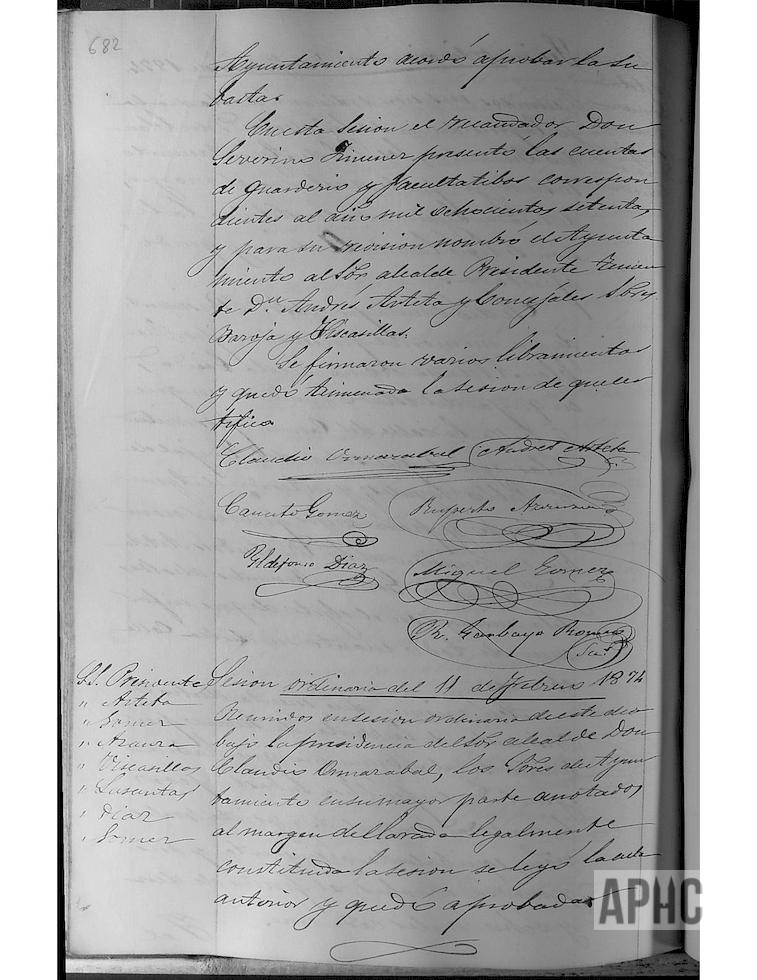 682
Ayuntamiento acordó aprobar la su
basta.
En esta sesion el recaudador Don
Severino Jimenez presentó las cuentas
de guarderio y facultatibos correspon
dientes al año mil ochocientos setenta,
y para su revision nombró el Ayunta
miento al Sor. alcalde Presidente Tenien
te Dn. Andrés Arteta y Concejales Sores
Baroja y Viscasillas.
Se firmaron varios libramientos
y quedó terminada la sesion de que cer
tifico
Claudio Ormazabal Andres Arteta
Canuto Gomez Ruperto
Yldefonso Diaz Miguel Gomez
R. Garbayo Romeo
Sio.
SS. Presidente
" Arteta
" Gomez
" Azaura
" Viscasillas
"
" Diaz
" Gomez
Sesion ordinaria del 11 de Febrero 1874
Reunidos en sesion ordinaria de este dia
bajo la presidencia del Sor. alcalde Don
Claudio Ormazabal, los Sores de Ayun
tamiento en su mayor parte anotados
al margen declarada legalmente
constituida la sesion se leyó la acta
anterior y quedó aprobada
APHC